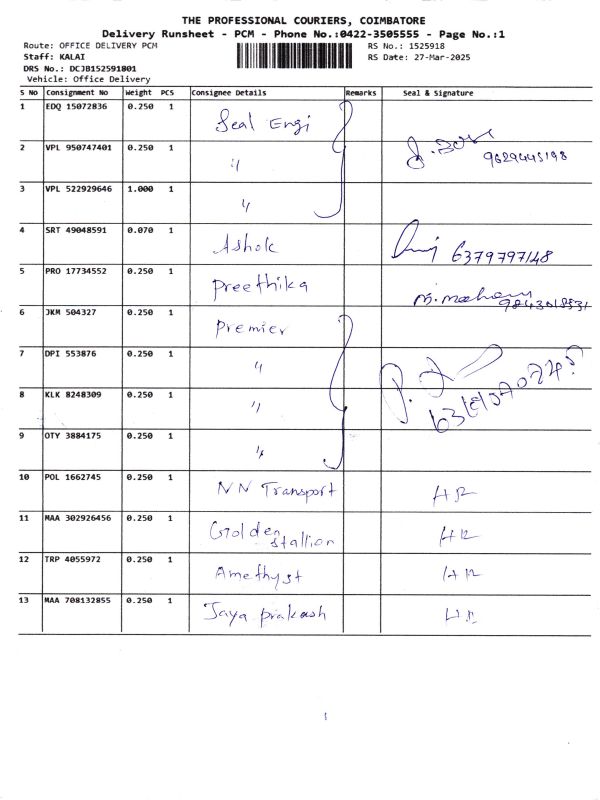 THE PROFESSIONAL COURIERS, COIMBATORE
Delivery Runsheet - PCM - Phone No.:0422-3505555 - Page No.:1
Route: OFFICE DELIVERY PCM RS No.: 1525918
Staff: KALAI RS Date: 27-Mar-2025
DRS No.: DCJB152591801
Vehicle: Office Delivery
S No Consignment No Weight PCS Consignee Details Remarks Seal & Signature
1 EDQ 15072836 0.250 1 Seal Engi
2 VPL 950747401 0.250 1 〃 9629445198
3 VPL 522929646 1.000 1 〃
4 SRT 49048591 0.070 1 Ashok 6379797148
5 PRO 17734552 0.250 1 Preethika
6 JKM 504327 0.250 1 Premier
7 DPI 553876 0.250 1 〃
8 KLK 8248309 0.250 1 〃
9 OTY 3884175 0.250 1 〃
10 POL 1662745 0.250 1 NN Transport
11 MAA 302926456 0.250 1 Golden Stallion
12 TRP 4055972 0.250 1 Amethyst
13 MAA 708132855 0.250 1 Jaya prakash
1